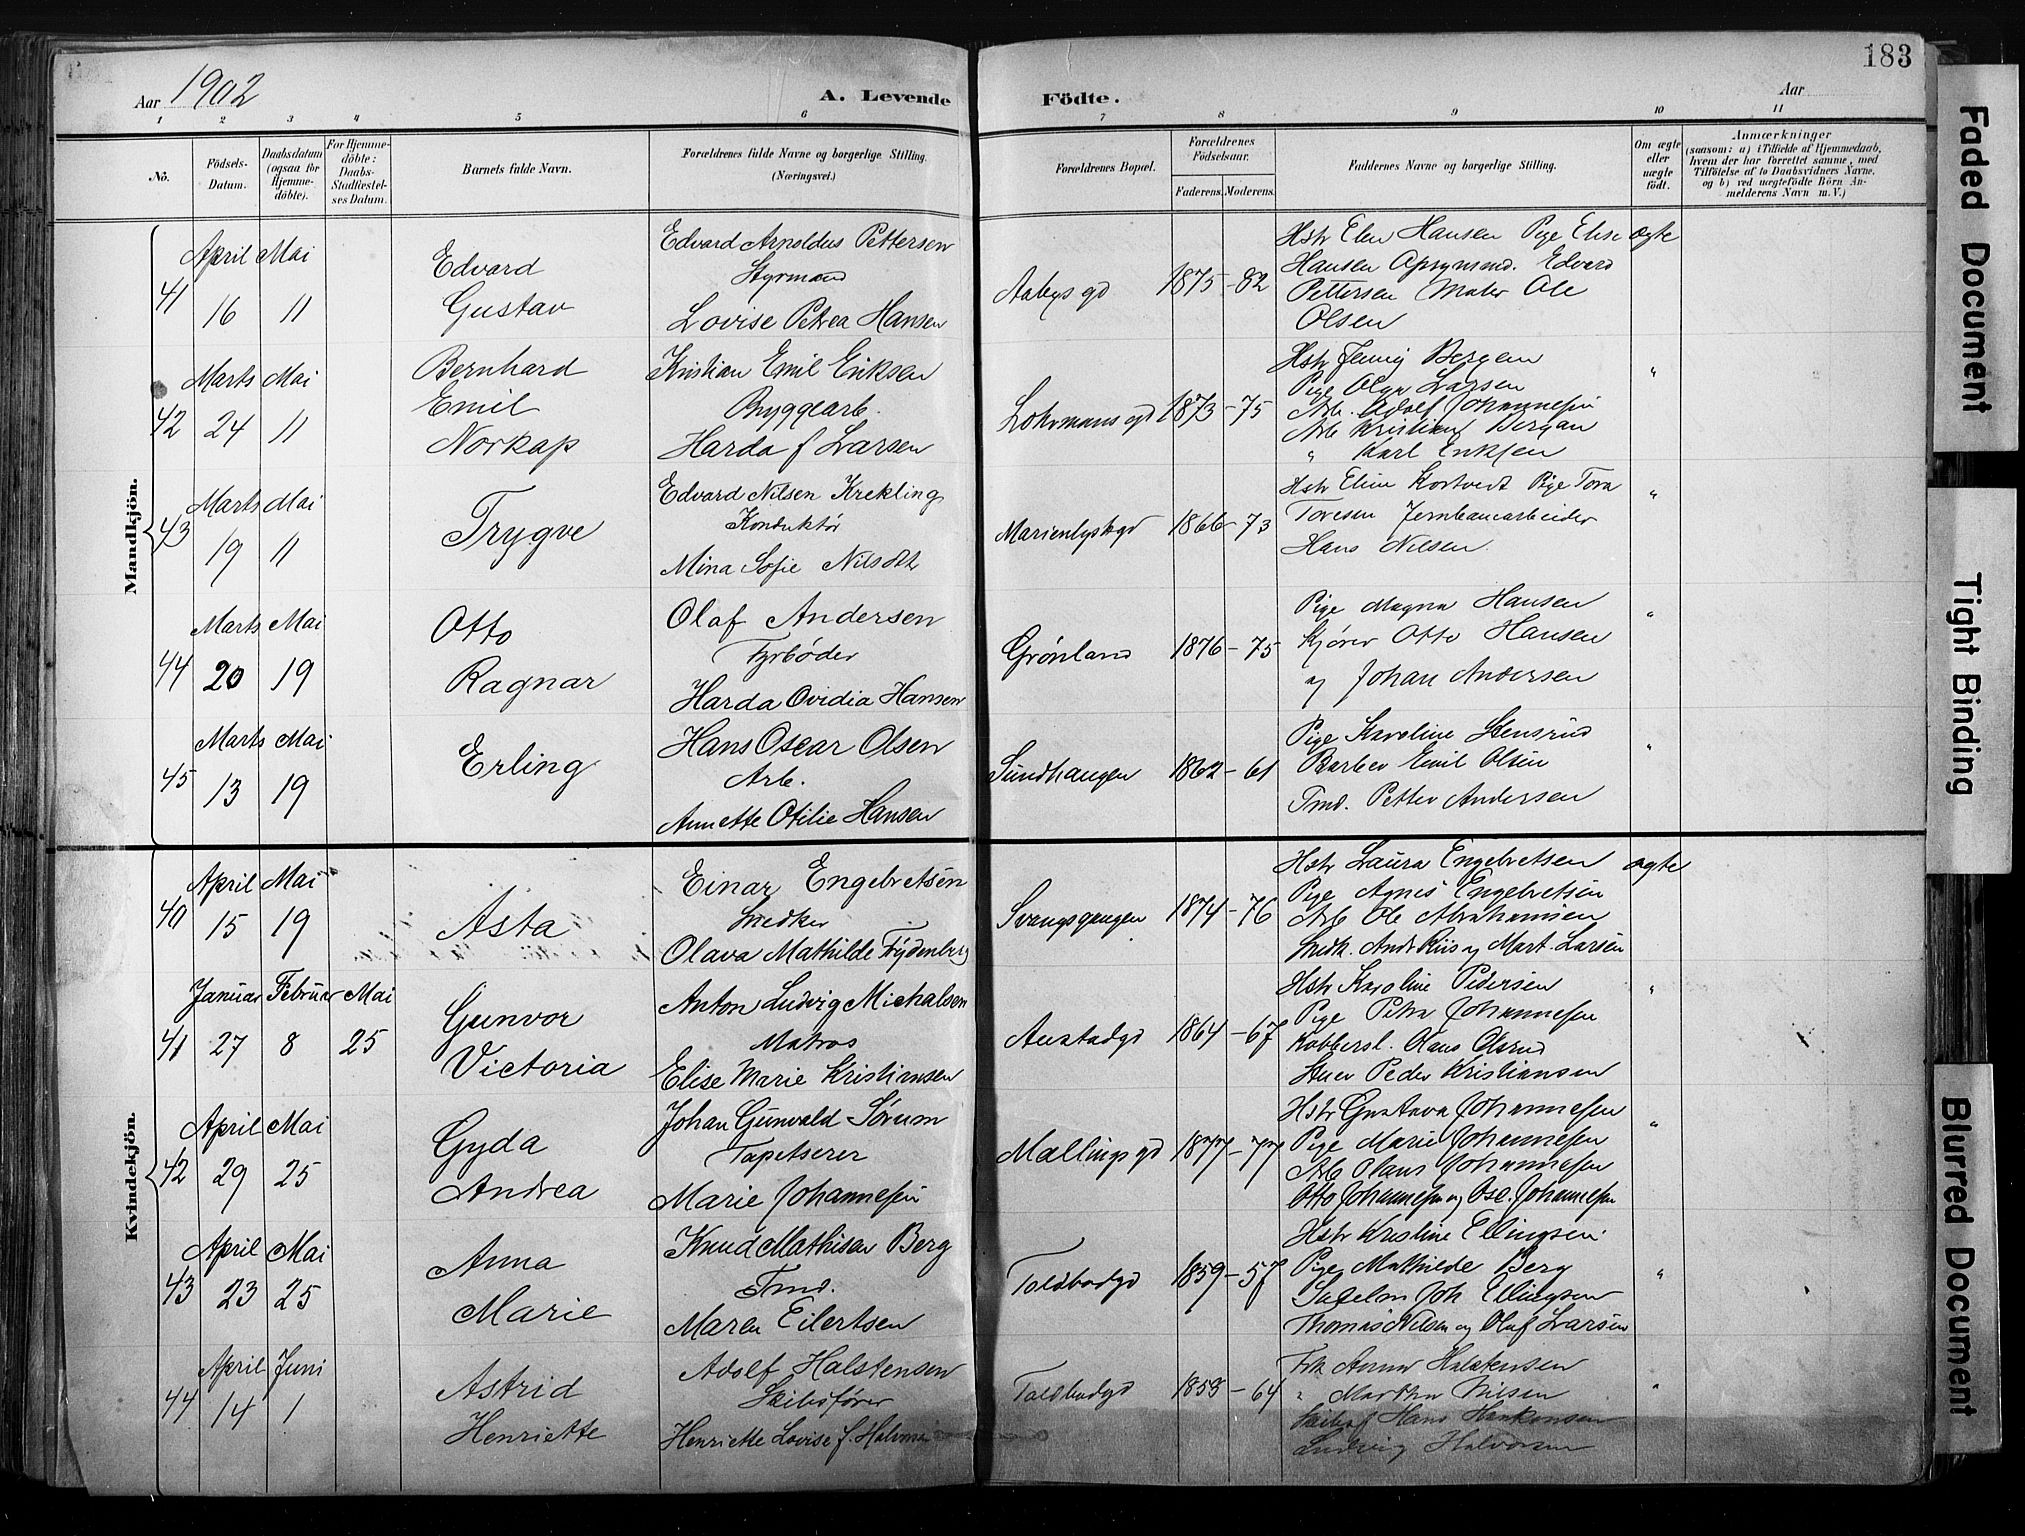 183
Aar 1902
A. Levende Födte.
Aar
1 2 3 4 5 6 7 8 9 10 11
No.
Födsels-Datum.
Daabsdatum (ogsaa for Hjemme-döbte).
For Hjemme-döbte: Daabs-Stadfæstel-ses Datum.
Barnets fulde Navn.
Forældrenes fulde Navne og borgerlige Stilling. (Næringsvei.)
Forældrenes Bopæl.
Forældrenes Födselsaar.
Faderens. Moderens.
Faddernes Navne og borgerlige Stilling.
Om ægte eller uægte födt.
Anmærkninger
(saasom: a) i Tilfælde af Hjemmedaab, hvem der har forrettet samme, med Tilföielse af to Daabsvidners Navne, og b) ved uægtefödte Börn An-melderens Navn m. V.)
Mandkjön.
41
April Mai
16 11
Edvard
Gustav
Edvard Arnoldus Pettersen
Styrmand
Lovise Petrea Hansen
Aabys gd
1875 - 82
Hstr Elen Hansen Pige Elise
Hansen Edvard
Pettersen Ole
Olsen
ægte
42
Marts Mai
24 11
Bernhard
Emil
Norkap
Kristian Emil Eriksen
Bryggearb.
Harda f Larsen
Lohrmans gd
1873 - 75
Hstr Jenny Bergan
Pige Olga Larsen
Arb. Adolf Johannesen
Arb Kristian Bergan
" Karl Eriksen
"
43
Marts Mai
19 11
Trygve
Edvard Nilsen Krekling
Konduktör
Mina Sofie Nilsdtr
Marienlystgd
1866 - 73
Hstr Eline Kortvedt Pige Tora
Toresen Jernbanearbeider
Hans Nilsen
"
44
Marts Mai
20 19
Otto
Ragnar
Olaf Andersen
Fyrbøder
Harda Ovidia Hansen
Grønland
1876 - 75
Pige Magna Hansen
Kjører Otto Hansen
og Johan Andersen
"
45
Marts Mai
13 19
Erling
Hans Oscar Olsen
Arb.
Annette Otilie Hansen
Sundhaugen
1862 - 61
Pige Karoline Stensrud
Barber Emil Olsen
Tmd. Petter Andersen
"
Kvindekjön.
40
April Mai
15 19
Asta
Einar Engebretsen
Snedker
Olava Mathilde Frydenberg
Svangsgangen
1874 - 76
Hstr Laura Engebretsen
Pige Agnes Engebretsen
Arb Ole Abrahamsen
Snedk. Andr Riis og Mart. Larsen
ægte
41
Januar Februar Mai
27 8 25
Gunvor
Victoria
Anton Ludvig Michalsen
Matros
Elise Marie Kristiansen
Austadgd
1864 - 67
Hstr Karoline Pedersen
Pige Petra Johannesen
Kobbersl. Olaus
Peder Kristiansen
"
42
April Mai
29 25
Gyda
Andrea
Johan Gunvald Sørum
Tapetserer
Marie Johannesen
Mallings gd
1877 - 77
Hstr Gustava Johannesen
Pige Marie Johannesen
Arb Olaus Johannesen
Otto Johannesen og Osc. Johannesen
"
43
April Mai
23 25
Anna
Marie
Knud Mathisen Berg
Tmd.
Maren Eilertsen
Toldbodgd
1859 - 57
Hstr Kristine Ellingsen
Pige Mathilde Berg
Joh Ellingsen
Thomas Nilsen og Olaf Larsen
"
44
April Juni
14 1
Astrid
Henriette
Adolf Halstensen
Skibsfører
Henriette Lovise f. Halvorsen
Toldbodgd
1858 - 64
Frk Anna Halstensen
" Martha Nilsen
Skibsf Hans Haakonsen
Ludvig Halvorsen
"
Faded Document
Tight Binding
Blurred Document